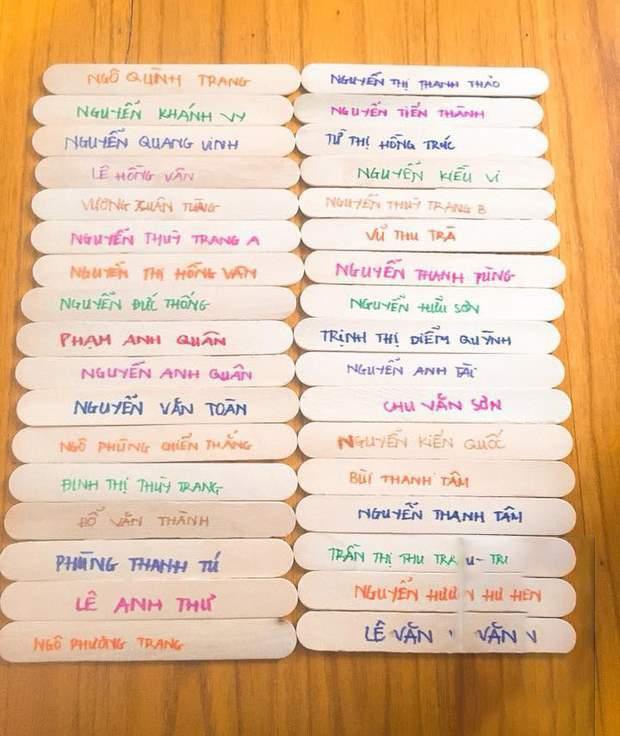 NGÔ QUỲNH TRANG
NGUYỄN KHÁNH VY
NGUYỄN QUANG VINH
LÊ HỒNG VÂN
VƯƠNG XUÂN TÙNG
NGUYỄN THUỲ TRANG A
NGUYỄN THỊ HỒNG VÂN
NGUYỄN ĐỨC THỐNG
PHẠM ANH QUÂN
NGUYỄN ANH QUÂN
NGUYỄN VĂN TOÀN
NGÔ PHÙNG CHIẾN THẮNG
ĐINH THỊ THÙY TRANG
ĐỖ VĂN THÀNH
PHÙNG THANH TÚ
LÊ ANH THƯ
NGÔ PHƯƠNG TRANG
NGUYỄN THỊ THANH THẢO
NGUYỄN TIẾN THÀNH
THỊ HỒNG TRÚC
NGUYỄN KIỀU VI
NGUYỄN THUỲ TRANG B
VŨ THU TRÀ
NGUYỄN THANH TÙNG
NGUYỄN HỮU SƠN
TRỊNH THỊ DIỄM QUỲNH
NGUYỄN ANH TÀI
CHU VĂN SƠN
NGUYỄN KIẾN QUỐC
BÙI THANH TÂM
NGUYỄN THANH TÂM
TRẦN THỊ THU
NGUYỄN
LÊ VĂN VĂN